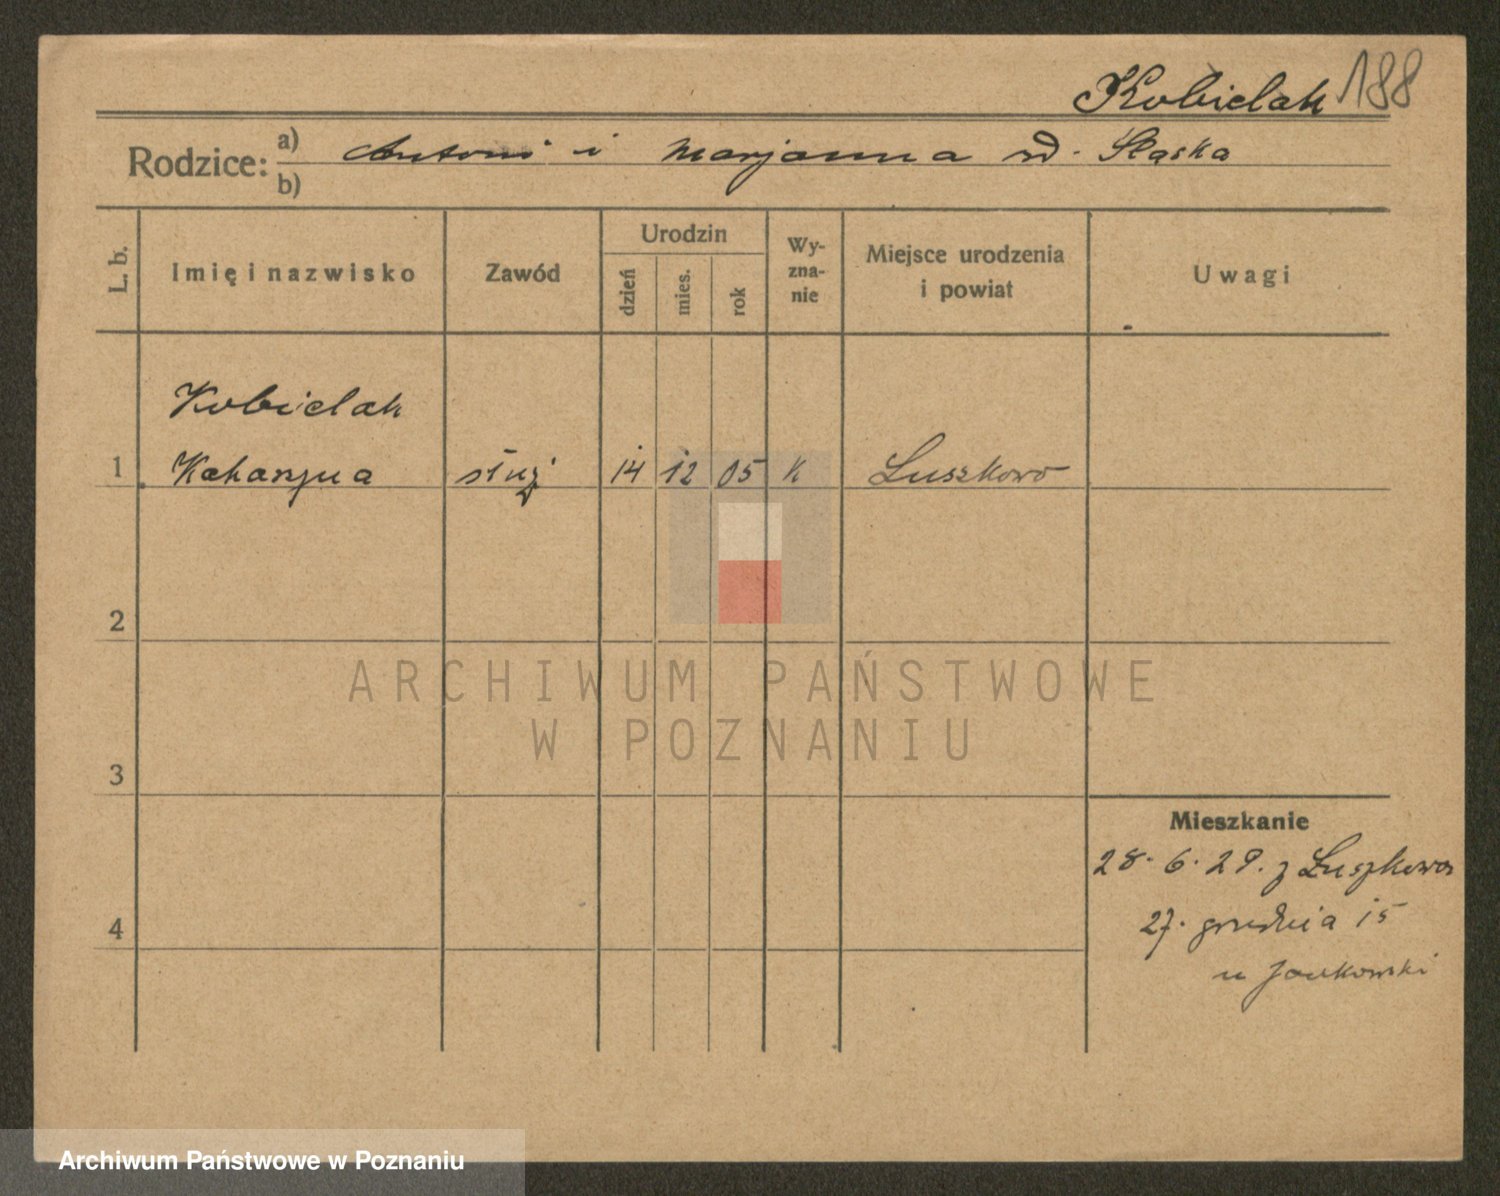 Kobielak 188
Rodzice: a) Antoni i Marjanna zd. Śląska
b)
L. b.
Imię i nazwisko
Zawód
Urodzin
dzień
mies.
rok
Wy-
zna-
nie
Miejsce urodzenia
i powiat
Uwagi
Kobielak
1 Katarzyna służ. 14 12 05 K Luszkowo
2
3
4
Mieszkanie
28. 6. 29. z Luszkowa
27. grudnia 15
u Jankowski
ARCHIWUM PAŃSTWOWE
W POZNANIU
Archiwum Państwowe w Poznaniu